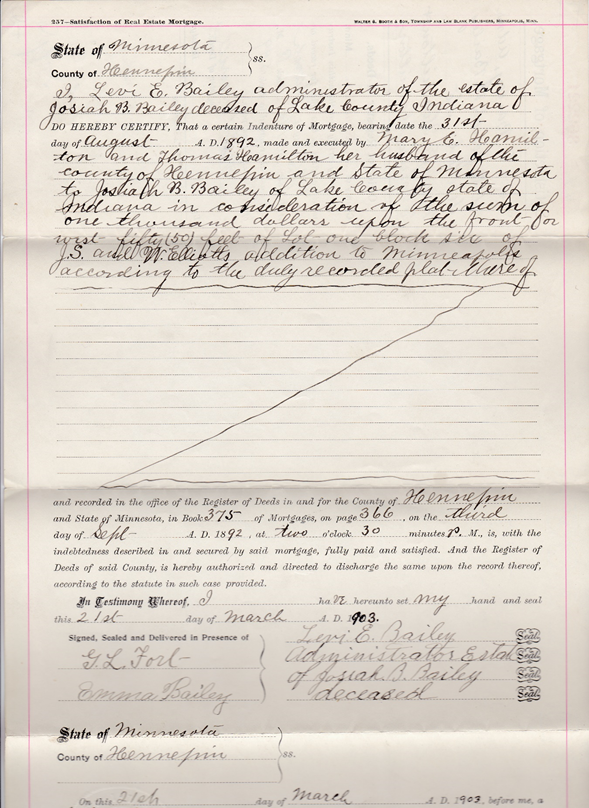 257—Satisfaction of Real Estate Mortgage. WALTER S. BOOTH & SON, TOWNSHIP AND LAW BLANK PUBLISHERS, MINNEAPOLIS, MINN.
State of Minnesota
ss.
County of Hennepin
I, Levi E. Bailey administrator of the estate of
Josiah B. Bailey deceased of Lake County Indiana
DO HEREBY CERTIFY, That a certain Indenture of Mortgage, bearing date the 31st
day of August A. D. 1892, made and executed by Mary E. Hamil-
ton and Thomas Hamilton her husband of the
county of Hennepin and State of Minnesota
to Josiah B. Bailey of Lake County state of
Indiana in consideration of the sum of
one thousand dollars upon the front or
west fifty (50) feet of Lot one block six of
J.S. and W. Elliotts addition to Minneapolis
according to the duly recorded plat thereof
and recorded in the office of the Register of Deeds in and for the County of Hennepin
and State of Minnesota, in Book 375 of Mortgages, on page 366, on the third
day of Sept A. D. 1892, at two o'clock 30 minutes P. M., is, with the
indebtedness described in and secured by said mortgage, fully paid and satisfied. And the Register of
Deeds of said County, is hereby authorized and directed to discharge the same upon the record thereof,
according to the statute in such case provided.
In Testimony Whereof, I have hereunto set my hand and seal
this 21st day of March A. D. 1903.
Signed, Sealed and Delivered in Presence of
G. L. Fort
Emma Bailey
Levi E. Bailey Seal
Administrator Estate Seal
of Josiah B. Bailey Seal
deceased Seal
State of Minnesota
ss.
County of Hennepin
On this 21st day of March A. D. 1903, before me, a